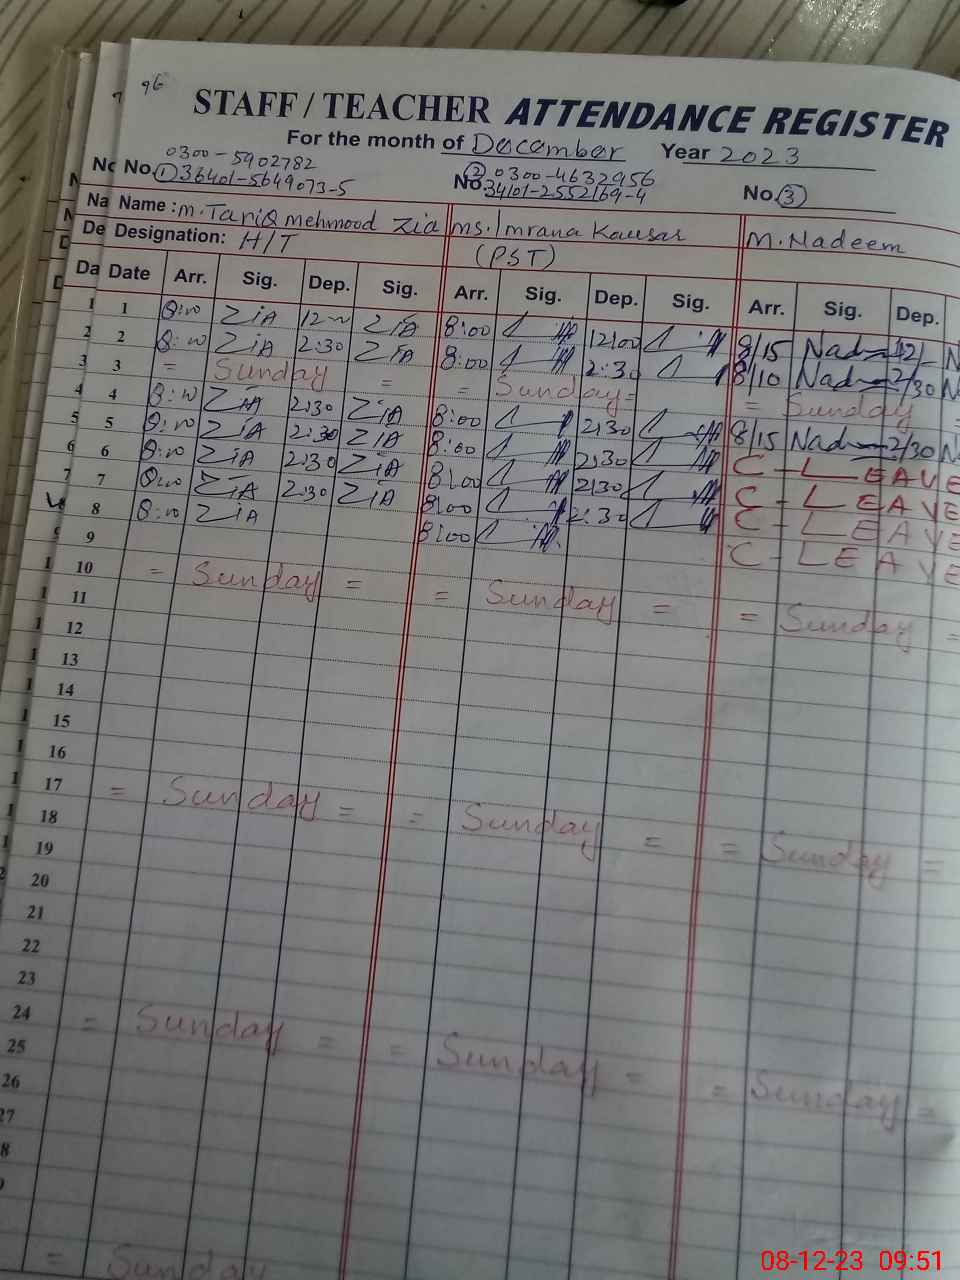 96
STAFF / TEACHER ATTENDANCE REGISTER
For the month of December Year 2023
0300-5902782 0300-4632956
No. ① 36401-5649073-5 No ② 34101-2552169-4 No. ③
Name : m. Tariq mehmood Zia ms. Imrana Kausar M. Nadeem
Designation: H/T (PST)
Date Arr. Sig. Dep. Sig. Arr. Sig. Dep. Sig. Arr. Sig. Dep.
1 8:00 ZiA 12:00 ZiA 8:00 12:00 8/15 Nad 12/
2 8:00 ZiA 2:30 ZiA 8:00 2:30 8/10 Nad 2/30
3 = Sunday = = Sunday = = Sunday
4 8:00 ZiA 2:30 ZiA 8:00 2:30 8/15 Nad 2/30
5 8:00 ZiA 2:30 ZiA 8:00 2:30 C - LEAVE
6 8:00 ZiA 2:30 ZiA 8:00 2:30 C - LEAVE
7 8:00 ZiA 2:30 ZiA 8:00 2:30 C - LEAVE
8 8:00 ZiA 8:00 C - LEAVE
9
10 = Sunday = = Sunday = = Sunday =
11
12
13
14
15
16
17 = Sunday = = Sunday = = Sunday =
18
19
20
21
22
23
24 = Sunday = = Sunday = = Sunday =
25
26
27
= Sunday
08-12-23 09:51